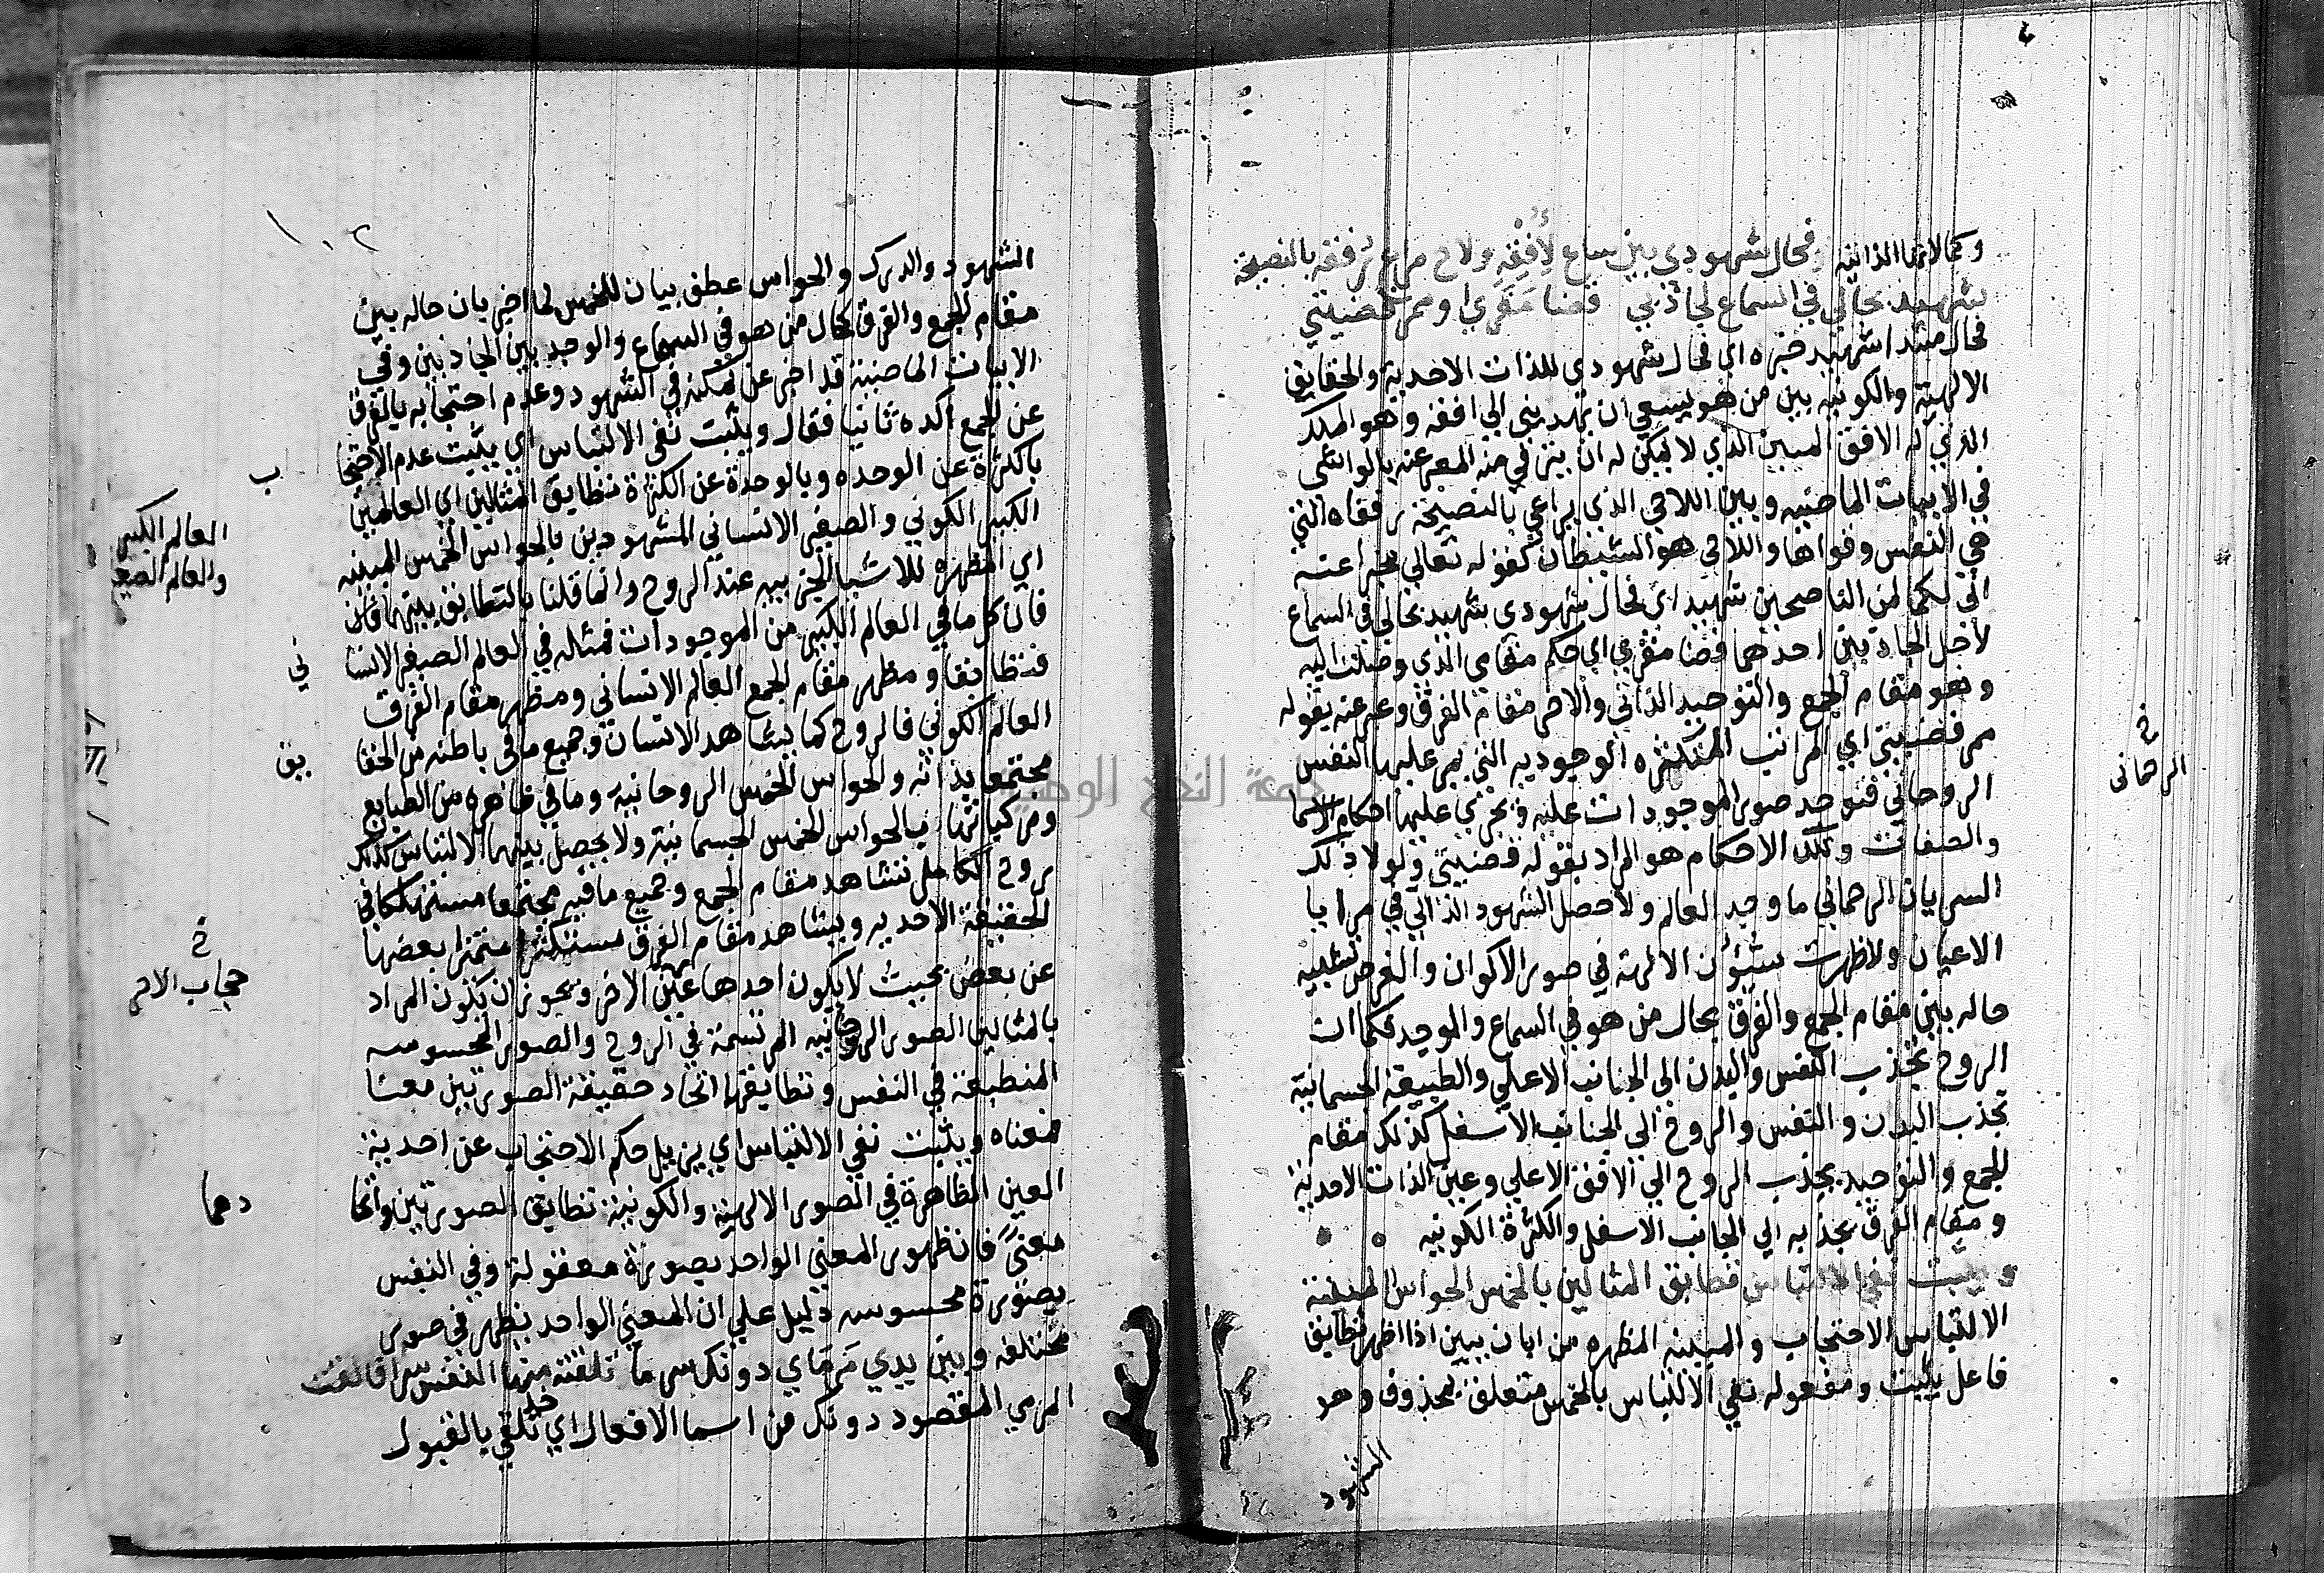 وكمالاتها الذاتيه فحال شهودي بين ساع لأفقه ولاح مراع رفقه بالنصيحة
شهيد بحالي في السماع لجاذبي قضا مقري او ممر قضيتي
فحال مبتدا شهيد خبره اي فحال شهودي للذات الاحدية والحقايق
الالهية والكونيه بين من هو يسعي ان يهديني الي افقه وهو الملك
الذي له الافق المبين الذي لا يمكن له ان يترقي منه المعبر عنه بالواشي
في الابيات الماضيه وبين اللاحي الذي يراعي بالنصيحة رفقاه التي
هي النفس وقواها واللاحي هو الشيطان كقوله تعالي مخبرا عنه
اني لكما لمن الناصحين شهيد اي فحال شهودي شهيد بحالي في السماع
لاجل الجاذبين احدهما قضا مقري اي حكم مقامي الذي وصلت اليه
وهو مقام الجمع والتوحيد الذاتي والاخر مقام الفرق وعبر عنه بقوله
ممر قضيتي اي المراتب المتكثره الوجوديه التي يمر عليها النفس
الروحاني فتوجد صور الموجودات عليه وتجري عليها احكام الاسما
والصفات وتلك الاحكام هو المراد بقوله قضيتي ولولا ذلك
السريان الرحماني ما وجد العالم ولا حصل الشهود الذاتي في مرايا
الاعيان ولا ظهرت شيؤن الالهية في صور الاكوان والغرض تشبيه
حاله بين مقام الجمع والفرق بحال من هو في السماع والوجد فكما ان
الروح تجذب النفس والبدن الي الجناب الاعلي والطبيعة الجسمانية
تجذب البدن والنفس والروح الي الجناب الاسفل كذلك مقام
الجمع والتوحيد يجذب الروح الي الافق الاعلي وعين الذات الاحدية
ومقام الفرق يجذبه الي الجانب الاسفل والكثرة الكونيه
ويثبت نفي الالتباس تطابق المثالين بالخمس الحواس المبينة
الالتباس الاحتجاب والمبينه المظهره من ابان يبين اذا اظهر تطابق
فاعل يثبت ومفعوله نفي الالتباس بالخمس متعلق بمحذوف وهو
الشهود
الرحماني
١٠٢
الشهود والدرك والحواس عطف بيان للخمس لما اخبر بان حاله بين
مقام الجمع والفرق كحال من هو في السماع والوجد بين الجاذبين وفي
الابيات الماضية قد اخبر عن تمكنه في الشهود وعدم احتجابه بالفرق
عن الجمع اكده ثانيا فقال ويثبت نفي الالتباس اي يثبت عدم الاحتجا
ب
باكثرة عن الوحده وبالوحدة عن الكثرة تطابق المثالين اي العالمين
الكبير الكوني والصغير الانساني المشهودين بالحواس الخمس المبينه
العالم الكبير
والعالم الصغير
اي المظهره للاشيا الجزييه عند الروح وانما قلنا بالتطابق بينهما فان
فان كل ما في العالم الكبير من الموجودات فمثله في العالم الصغير الانسا
ني
فتطابقا ومظهر مقام الجمع العالم الانساني ومظهر مقام الفرق
العالم الكوني فالروح كما يشاهد الانسان وجميع ما في باطنه من الحقا
يق
مجتمعا بذاته والحواس الخمس الروحانية وما في ظاهره من الطبايع
ومركباتها بالحواس الخمس الجسمانية ولا يحصل بينهما الالتباس كذلك
روح الكامل تشاهد مقام الجمع وجميع ما فيه مجتمعا مستهلكا في
الحقيقة الاحديه ويشاهد مقام الفرق مستكثرا متميزا بعضها
عن بعض بحيث لا يكون احدها عين الاخر ويجوز ان يكون المراد
حجاب الاخر
بالمثالين الصور الروحانيه المرتسمة في الروح والصور المحسوسه
المنطبعة في النفس وتطابقها اتحاد حقيقة الصورتين معنا
فمعناه ويثبت نفي الالتباس اي يزيل حكم الاحتجاب عن احدية
العين الظاهرة في الصور الالهية والكونية تطابق الصورتين واتحا
دهما
معنىً فان ظهور المعني الواحد بصورة معقولة وفي النفس
بصورة محسوسه دليل علي ان المعني الواحد يظهر في صور
مختلفه وبين يدي مرماي دونك سر ما تلقته منها النفس سرا فالقت
المرمي المقصود دونك من اسما الافعال اي خذ تلقي بالقبول